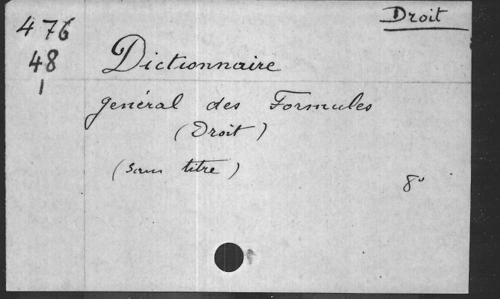 Droit
476
48
1
Dictionnaire
général des Formules
(Droit)
(sans titre)
8°